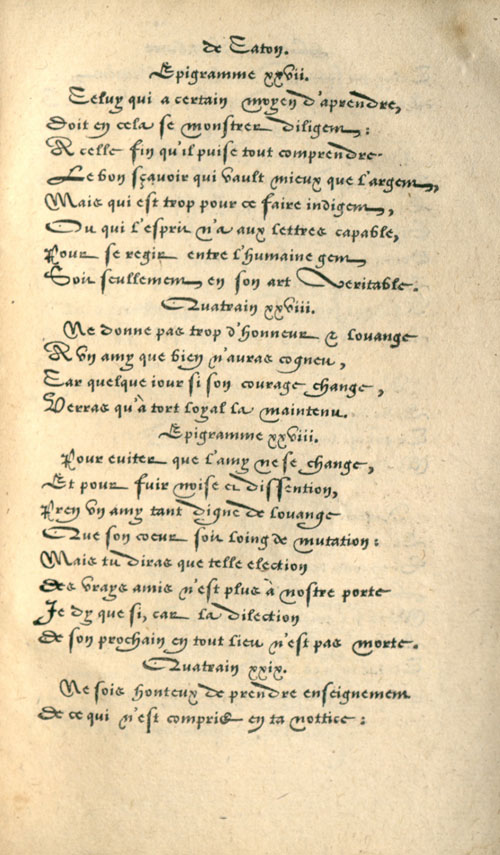 de Caton.
Epigramme xxvii.
Celuy qui a certain moyen d'aprendre,
Doit en cela se monstrer diligent:
A celle fin qu'il puise tout comprendre
Le bon sçavoir qui vault mieux que l'argent,
Mais qui est trop pour ce faire indigent,
Ou qui l'esprit n'a aux lettres capable,
Pour se regir entre l'humaine gent,
Soit seullement en son art Veritable.
Quatrain xxviii.
Ne donne pas trop d'honneur & louange
A vn amy que bien n'auras cogneu,
Car quelque iour si son courage change,
Verras qu'à tort loyal la maintenu.
Epigramme xxviii.
Pour euiter que l'amy ne se change,
Et pour fuir noise et dissention,
Pren vn amy tant digne de louange
Que son coeur soit loing de mutation:
Mais tu diras que telle election
des vrays amis n'est plus à nostre porte
Je dy que si, car la dilection
de son prochain en tout lieu n'est pas morte.
Quatrain xxix.
Ne sois honteux de prendre enseignement
de ce qui n'est compris en ta nottice: